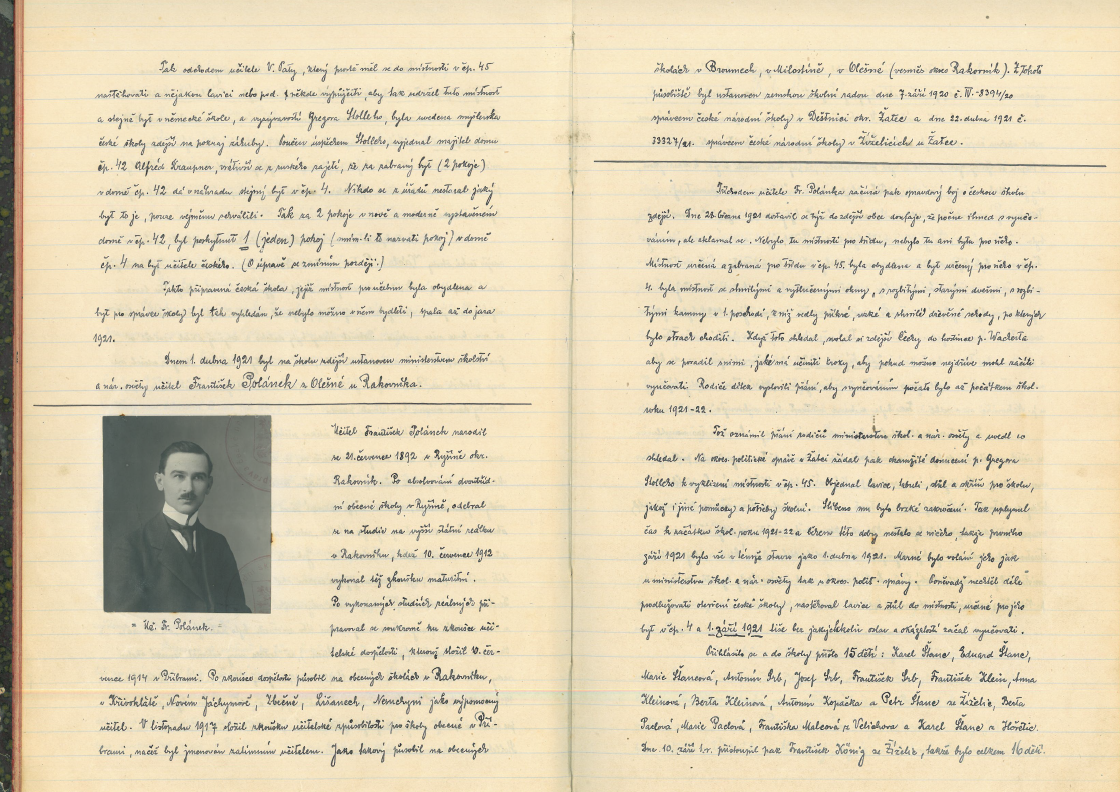 Tak odchodem učitele V. Paty, který prostě měl se do místnosti v čp. 45
nastěhovati a nějakou lavici neb pod. někde vypůjčiti, aby tak udržel tuto místnost
a stejně byt v německé škole, a vyzývavostí Gregora Stolleho, byla uvedena myšlenka
české školy zdejší na pokraj záhuby. Končen úspěchem Stolleho, vyjednal majitel domu
čp. 42 Alfréd Kraupner, vrátivší se z ruského zajetí, že za zabraný byt (2 pokoje)
v domě čp. 42 dá v náhradu stejný byt v čp. 4. Nikdo se z úřadů netázal jaký
byt to je, pouze výměnu schválili. Tak za 2 pokoje v nově a moderně vystavěném
domě v čp. 42, byl poskytnut 1 (jeden) pokoj (mám-li to nazvati pokoj) v domě
čp. 4 na byt učitele českého. (O úpravě se zmíním později.)
Takto připravená česká škola, jejíž místnost pro učebnu byla obydlena a
byt pro správce školy byl tak vyhledán, že nebylo možno v něm bydleti, spala až do jara
1921.
Dnem 1. dubna 1921 byl na školu zdejší ustanoven ministerstvem školství
a nár. osvěty učitel František Polánek z Olešné u Rakovníka.
Učitel František Polánek narodil
se 21. července 1892 v Ryšíně okr.
Rakovník. Po absolvování dvoutříd-
ní obecné školy v Ryšíně, odebral
se na studie na vyšší státní reálku
v Rakovníku, kdež 10. července 1912
vykonal též zkoušku maturitní.
Po vykonaných studiích reálných při-
pravoval se soukromě ku zkoušce uči-
telské dospělosti, kterouž složil 10. čer-
= Uč. Fr. Polánek. =
vence 1914 v Příbrami. Po zkoušce dospělosti působil na obecných školách v Rakovníku,
v Křivoklátě, Novém Jáchymově, Zbečně, Lišanech, Nezabudicích jako výpomocný
učitel. V listopadu 1917 složil zkoušku učitelské způsobilosti pro školy obecné v Pří-
brami, načež byl jmenován zatímním učitelem. Jako takový působil na obecných
školách v Broumech, v Milostíně, v Olešné (vesměs okres Rakovník). Z tohoto
působiště byl ustanoven zemskou školní radou dne 7. září 1920 č. IV.-8394/20
správcem české národní školy v Deštnici okr. Žatec a dne 22. dubna 1921 č.
33327/21. správcem české národní školy v Žiželicích u Žatce.
Příchodem učitele Fr. Polánka začíná pak opravdový boj o českou školu
zdejší. Dne 28. března 1921 dostavil se týž do zdejší obce doufaje, že počne ihned s vyučo-
váním, ale zklamal se. Nebylo tu místnosti pro třídu, nebylo tu ani bytu pro něho.
Místnost určená a zabraná pro třídu v čp. 45. byla obydlena a byt určený pro něho v čp.
4. byla místnost se shnilými a vytlučenými okny, s rozbitými, starými dveřmi, s rozbi-
tými kamny v 1. poschodí, z níž vedly příkré, úzké a shnilé dřevěné schody, po kterých
bylo strach choditi. Když toto shledal, svolal si zdejší Čechy do hostince p. Wackerta
aby se poradil s nimi, jaké má učiniti kroky, aby pokud možno nejdříve mohl začíti
vyučovati. Rodiče dítek vyslovili přání, aby s vyučováním počato bylo až počátkem škol.
roku 1921-22.
Též oznámil přání rodičů ministerstvu škol. a nár. osvěty a uvedl co
shledal. Na okres. politické správě v Žatci žádal pak okamžité donucení p. Gregora
Stolleho k vyklizení místnosti v čp. 45. Objednal lavice, tabuli, stůl a skříň pro školu,
jakož i jiné pomůcky a potřeby školní. Slíbeno mu bylo brzké zakročení. Tak uplynul
čas k začátku škol. roku 1921-22 a během této doby nestalo se ničeho, takže prvního
září 1921 bylo vše v témže stavu jako 1. dubna 1921. Marné bylo volání jeho jak
u ministerstva škol. a nár. osvěty tak u okres. polit. správy. Poněvadž nechtěl déle
prodlužovati otevření české školy, nastěhoval lavice a stůl do místnosti, určené pro jeho
byt v čp. 4 a 1. září 1921 tiše bez jakýchkoliv oslav a okázalostí začal vyučovati.
Přihlásilo se a do školy přišlo 15 dětí: Karel Štanc, Eduard Štanc,
Marie Štancová, Antonín Srb, Josef Srb, František Srb, František Klein, Anna
Kleinová, Berta Kleinová, Antonín Kopačka a Petr Štanc ze Žiželic, Berta
Paclová, Marie Paclová, Františka Malcová z Velichova a Karel Štanc z Hořetic.
Dne 10. září t.r. přistoupil pak František König ze Žiželic, takže bylo celkem 16 dětí.